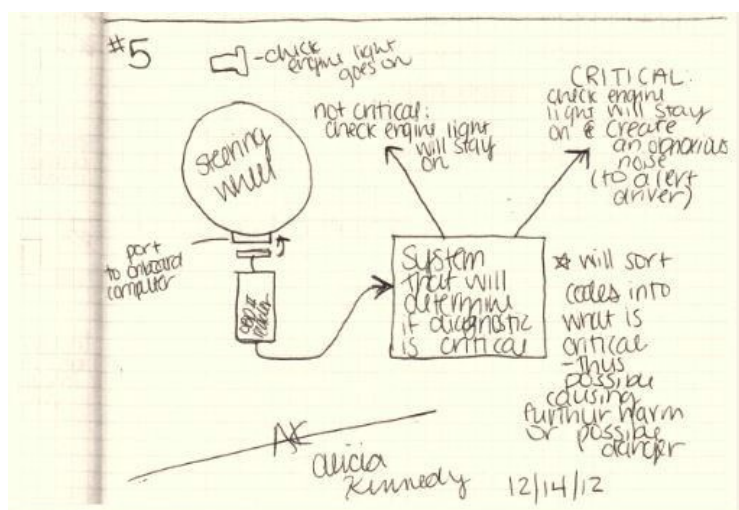 #5
-check
engine light
goes on
steering
wheel
port
to onboard
computer
OBD II
reader
not critical:
check engine light
will stay
on
CRITICAL:
check engine
light will stay
on & create
an obnoxious
noise
(to alert
driver)
system
that will
determine
if diagnostic
is critical
☆ will sort
codes into
what is
critical
-thus
possible
causing
furthur harm
or possible
danger
AK
alicia
Kennedy
12/14/12